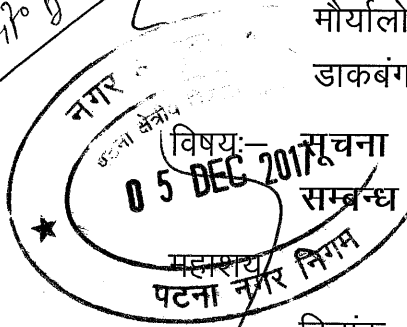 मौर्यालो
डाकबंग
नगर
विषयः– सूचना
05 DEC 2017
सम्बन्ध
महाशय
पटना नगर निगम